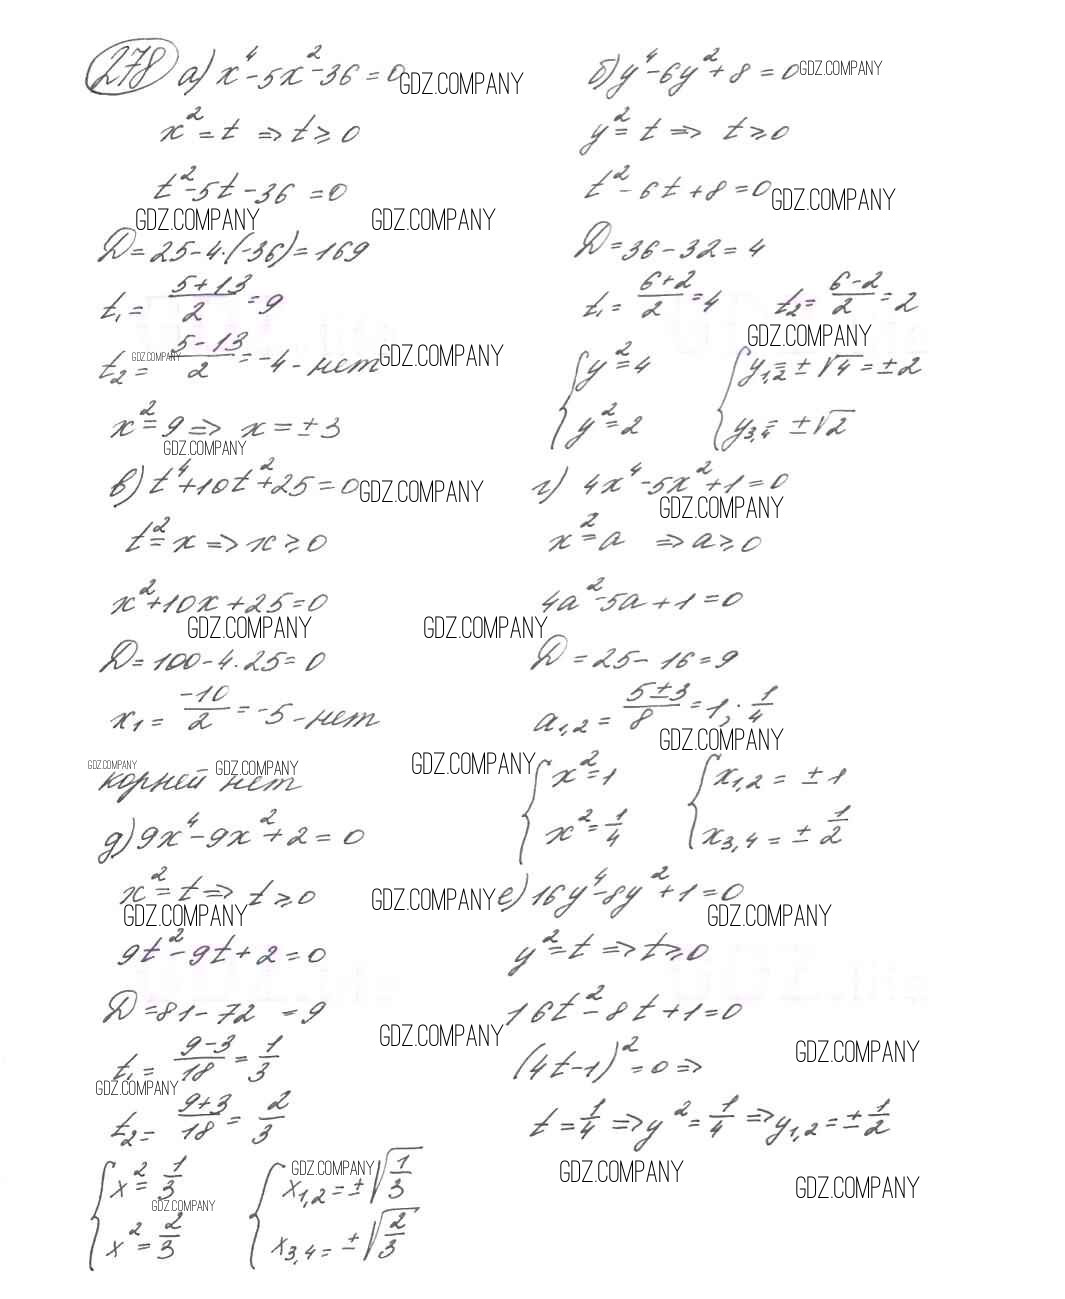 278 а) x⁴-5x²-36=0 GDZ.COMPANY
x²=t => t≥0
t²-5t-36=0
GDZ.COMPANY GDZ.COMPANY
D=25-4·(-36)=169
t₁= (5+13)/2 =9
t₂= (5-13)/2 =-4 - нет GDZ.COMPANY
GDZ.COMPANY
x²=9 => x=±3
GDZ.COMPANY
б) y⁴-6y²+8=0 GDZ.COMPANY
y²=t => t≥0
t²-6t+8=0 GDZ.COMPANY
D=36-32=4
t₁= (6+2)/2 =4 t₂= (6-2)/2 =2
GDZ.COMPANY
{y²=4 {y₁,₂=±√4=±2
{y²=2 {y₃,₄=±√2
в) t⁴+10t²+25=0 GDZ.COMPANY
t²=x => x≥0
x²+10x+25=0
GDZ.COMPANY GDZ.COMPANY
D=100-4·25=0
x₁= -10/2 =-5 - нет
GDZ.COMPANY GDZ.COMPANY
корней нет
г) 4x⁴-5x²+1=0
GDZ.COMPANY
x²=a => a≥0
4a²-5a+1=0
D=25-16=9
a₁,₂= (5±3)/8 =1; 1/4
GDZ.COMPANY
GDZ.COMPANY
{x²=1 {x₁,₂=±1
{x²=1/4 {x₃,₄=±1/2
д) 9x⁴-9x²+2=0
x²=t => t≥0
GDZ.COMPANY GDZ.COMPANY
9t²-9t+2=0
D=81-72=9
GDZ.COMPANY
t₁= (9-3)/18 = 1/3
GDZ.COMPANY
t₂= (9+3)/18 = 2/3
{x²=1/3 {x₁,₂=±√(1/3)
GDZ.COMPANY GDZ.COMPANY
{x²=2/3 {x₃,₄=±√(2/3)
е) 16y⁴-8y²+1=0
GDZ.COMPANY
y²=t => t≥0
16t²-8t+1=0
(4t-1)²=0 =>
GDZ.COMPANY
t=1/4 => y²=1/4 => y₁,₂=±1/2
GDZ.COMPANY GDZ.COMPANY